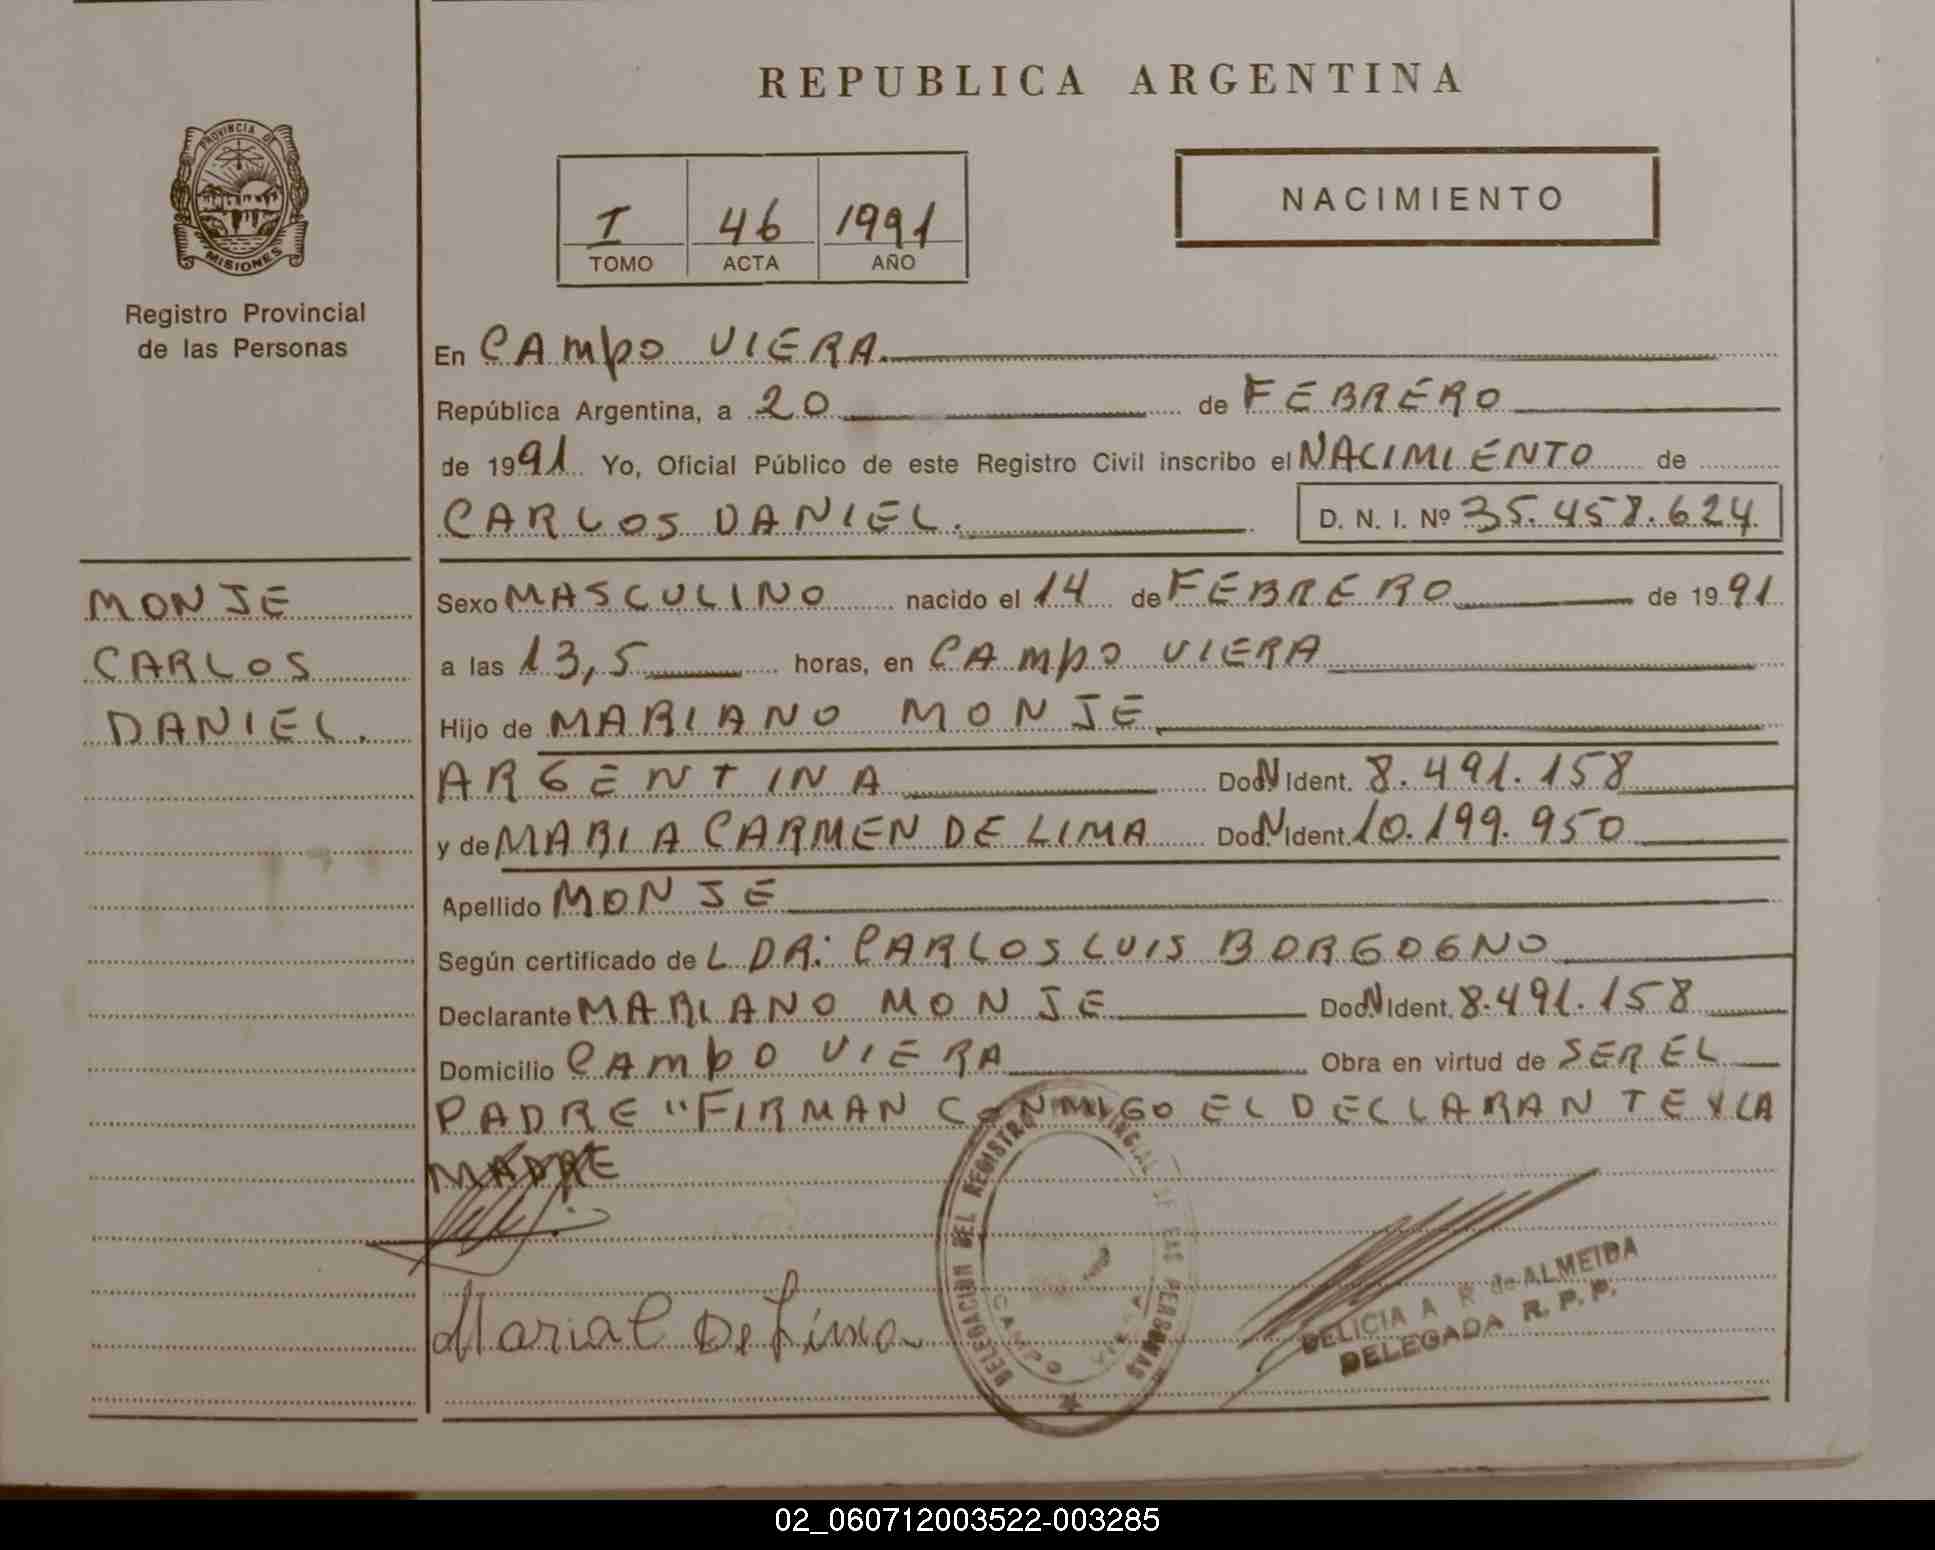 REPUBLICA ARGENTINA
PROVINCIA DE
MISIONES
Registro Provincial
de las Personas
I 46 1991
TOMO ACTA AÑO
NACIMIENTO
En CAMPO VIERA.
República Argentina, a 20 de FEBRERO
de 1991 Yo, Oficial Público de este Registro Civil inscribo el NACIMIENTO de
CARLOS DANIEL. D. N. I. Nº 35.458.624
MONJE
CARLOS
DANIEL.
Sexo MASCULINO nacido el 14 de FEBRERO de 1991
a las 13,5 horas, en CAMPO VIERA
Hijo de MARIANO MONJE
ARGENTINA Doc. N Ident. 8.491.158
y de MARIA CARMEN DE LIMA Doc. N Ident. 10.199.950
Apellido MONJE
Según certificado de L DR: CARLOS LUIS BORGOGNO
Declarante MARIANO MONJE Doc. N Ident. 8.491.158
Domicilio CAMPO VIERA Obra en virtud de SER EL
PADRE "FIRMAN CONMIGO EL DECLARANTE Y LA
MADRE
Maria C De Lima
DELEGACION DEL REGISTRO PROVINCIAL DE LAS PERSONAS
CAMPO VIERA
DELICIA A R de ALMEIDA
DELEGADA R. P. P.
02_060712003522-003285